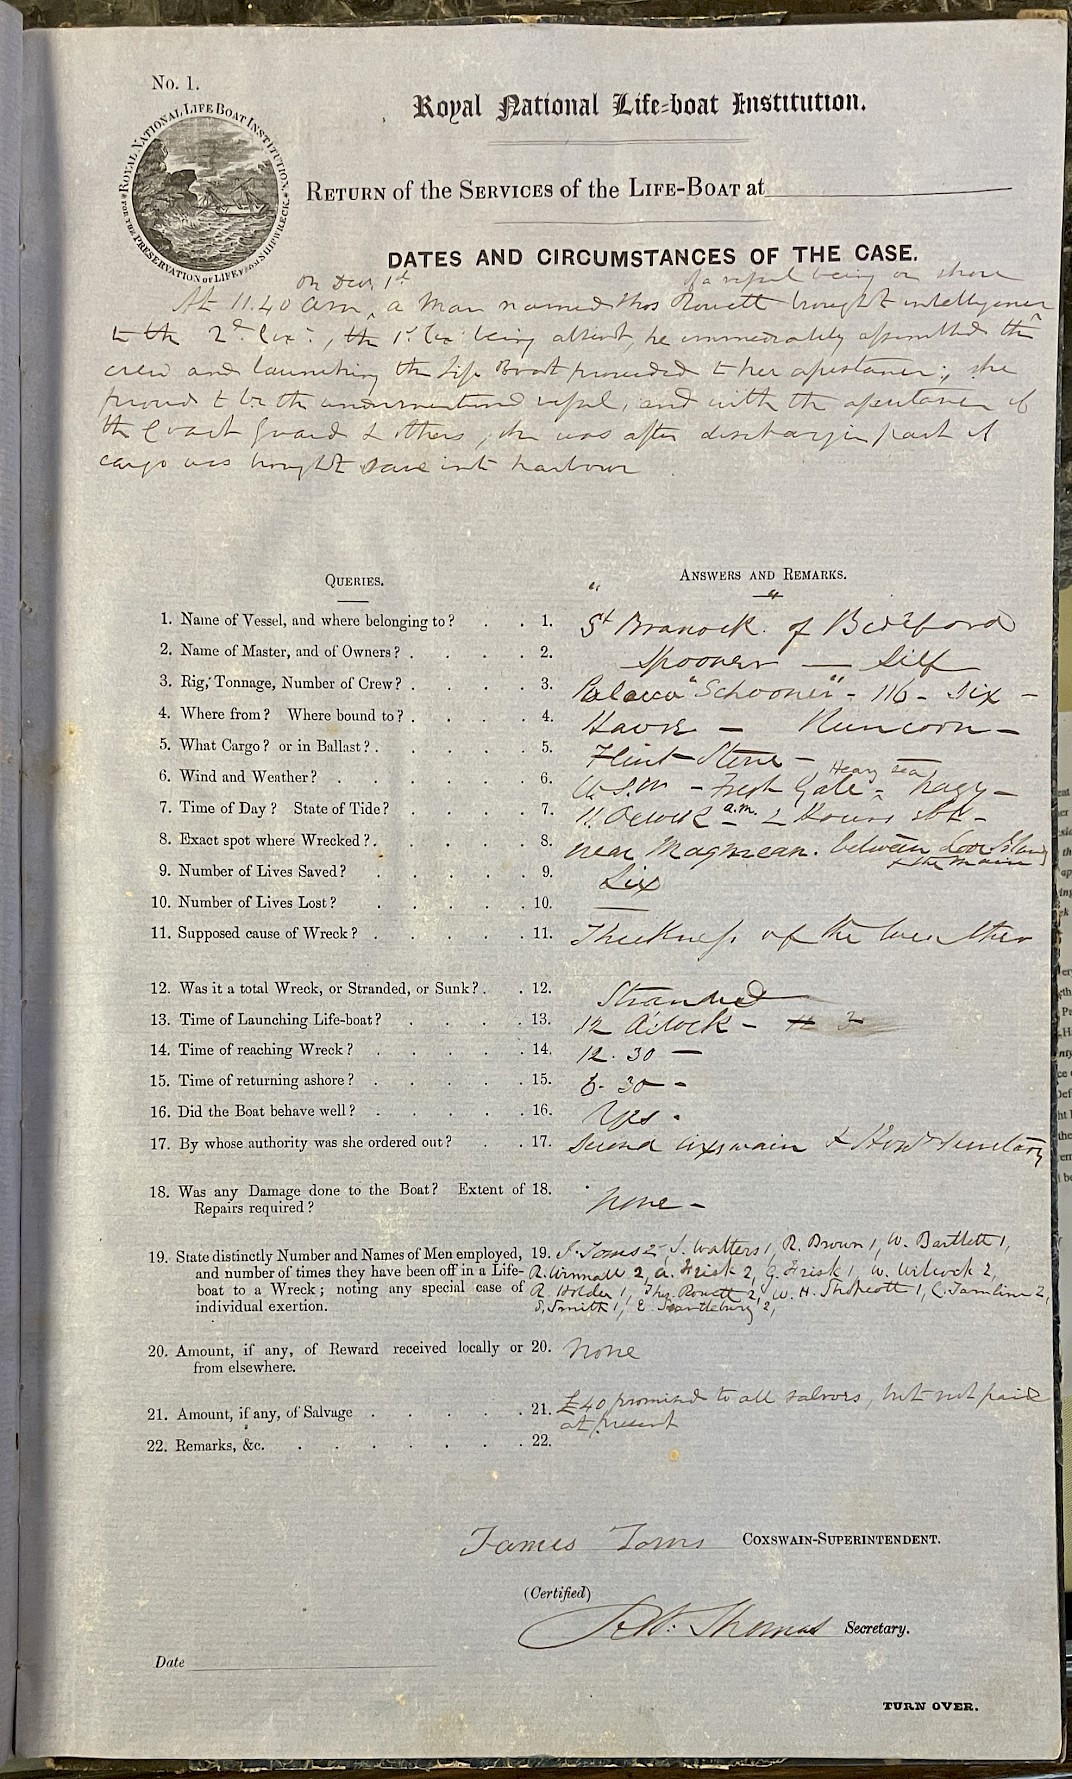 No. 1.
ROYAL NATIONAL LIFE BOAT INSTITUTION.
FOR THE PRESERVATION OF LIFE FROM SHIPWRECK.
Royal National Life-boat Institution.
RETURN of the SERVICES of the LIFE-BOAT at
DATES AND CIRCUMSTANCES OF THE CASE.
on Dec. 1st of a vessel being on shore
At 11.40 am, a man named Thos Rowett brought intelligence
to the 2d Cox:, the 1st Cox: being absent, he immediately assembled the
crew and launching the Life Boat proceeded to her assistance; she
proved to be the undermentioned vessel, and with the assistance of
the Coast Guard & others, she was after discharging part of
cargo was brought safe into harbour
QUERIES.
ANSWERS AND REMARKS.
1. Name of Vessel, and where belonging to? 1. "St Branock" of Bideford
2. Name of Master, and of Owners? 2. Spooner — Self
3. Rig, Tonnage, Number of Crew? 3. "Schooner" - 116 - Six -
4. Where from? Where bound to? 4. Havre - Runcorn -
5. What Cargo? or in Ballast? 5. Flint Stone -
6. Wind and Weather? 6. W.S.W - Fresh Gale - Heavy sea hazy -
7. Time of Day? State of Tide? 7. 11 Oclock a.m. 2 Hours ebb -
8. Exact spot where Wrecked? 8. near Magnzean. between Looe Island
& the main
9. Number of Lives Saved? 9. Six
10. Number of Lives Lost? 10. —
11. Supposed cause of Wreck? 11. Thickness of the weather
12. Was it a total Wreck, or Stranded, or Sunk? 12. Stranded
13. Time of Launching Life-boat? 13. 12 O'clock -
14. Time of reaching Wreck? 14. 12.30 —
15. Time of returning ashore? 15. 6.30 -
16. Did the Boat behave well? 16. Yes.
17. By whose authority was she ordered out? 17. Second coxswain & Hony Secretary
18. Was any Damage done to the Boat? Extent of 18. None -
Repairs required?
19. State distinctly Number and Names of Men employed, 19. J. Toms 2, J. Walters 1, R. Brown 1, W. Bartlett 1,
and number of times they have been off in a Life- R. Winnall 2, A. Frisk 2, G. Frisk 1, W. Wilcock 2,
boat to a Wreck; noting any special case of R. Holder 1, Thos. Rowett 2, W. H. Shopcott 1, C. Tamlin 2,
individual exertion. S. Smith 1, E. Scantlebury 2,
20. Amount, if any, of Reward received locally or 20. None
from elsewhere.
21. Amount, if any, of Salvage 21. £40 promised to all salvors, but not paid
at present
22. Remarks, &c. 22.
James Toms COXSWAIN-SUPERINTENDENT.
(Certified)
Thomas Secretary.
Date
TURN OVER.